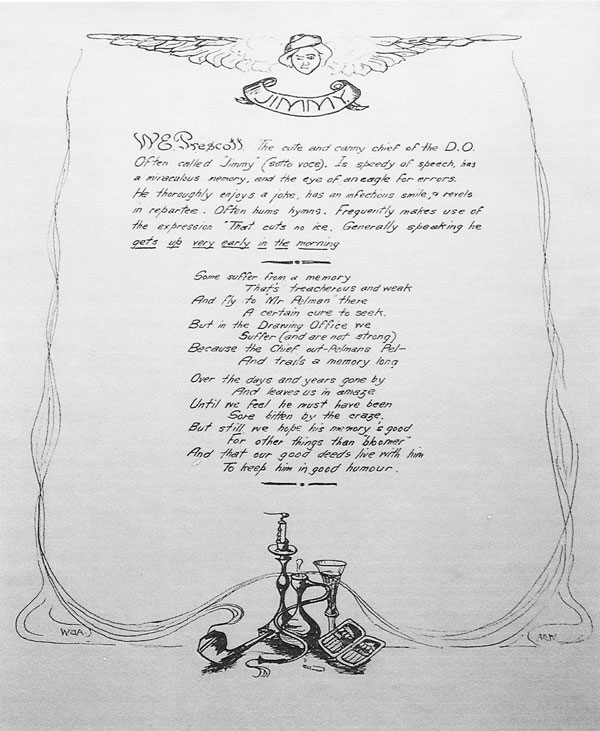 JIMMY
W.E. Prescott. The cute and canny chief of the D.O.
Often called "Jimmy" (sotto voce). Is speedy of speech, has
a miraculous memory, and the eye of an eagle for errors.
He thoroughly enjoys a joke, has an infectious smile, & revels
in repartee. Often hums hymns. Frequently makes use of
the expression "That cuts no ice. Generally speaking he
gets up very early in the morning
Some suffer from a memory
That's treacherous and weak
And fly to "Mr Pelman" there
A certain cure to seek.
But in the Drawing Office we
Suffer (and are not strong)
Because the Chief out-Pelmans Pel-
And trails a memory long
Over the days and years gone by
And leaves us in amaze
Until we feel he must have been
Sore bitten by the craze.
But still we hope his memory's good
For other things than "bloomer"
And that our good deeds live with him
To keep him in good humour.